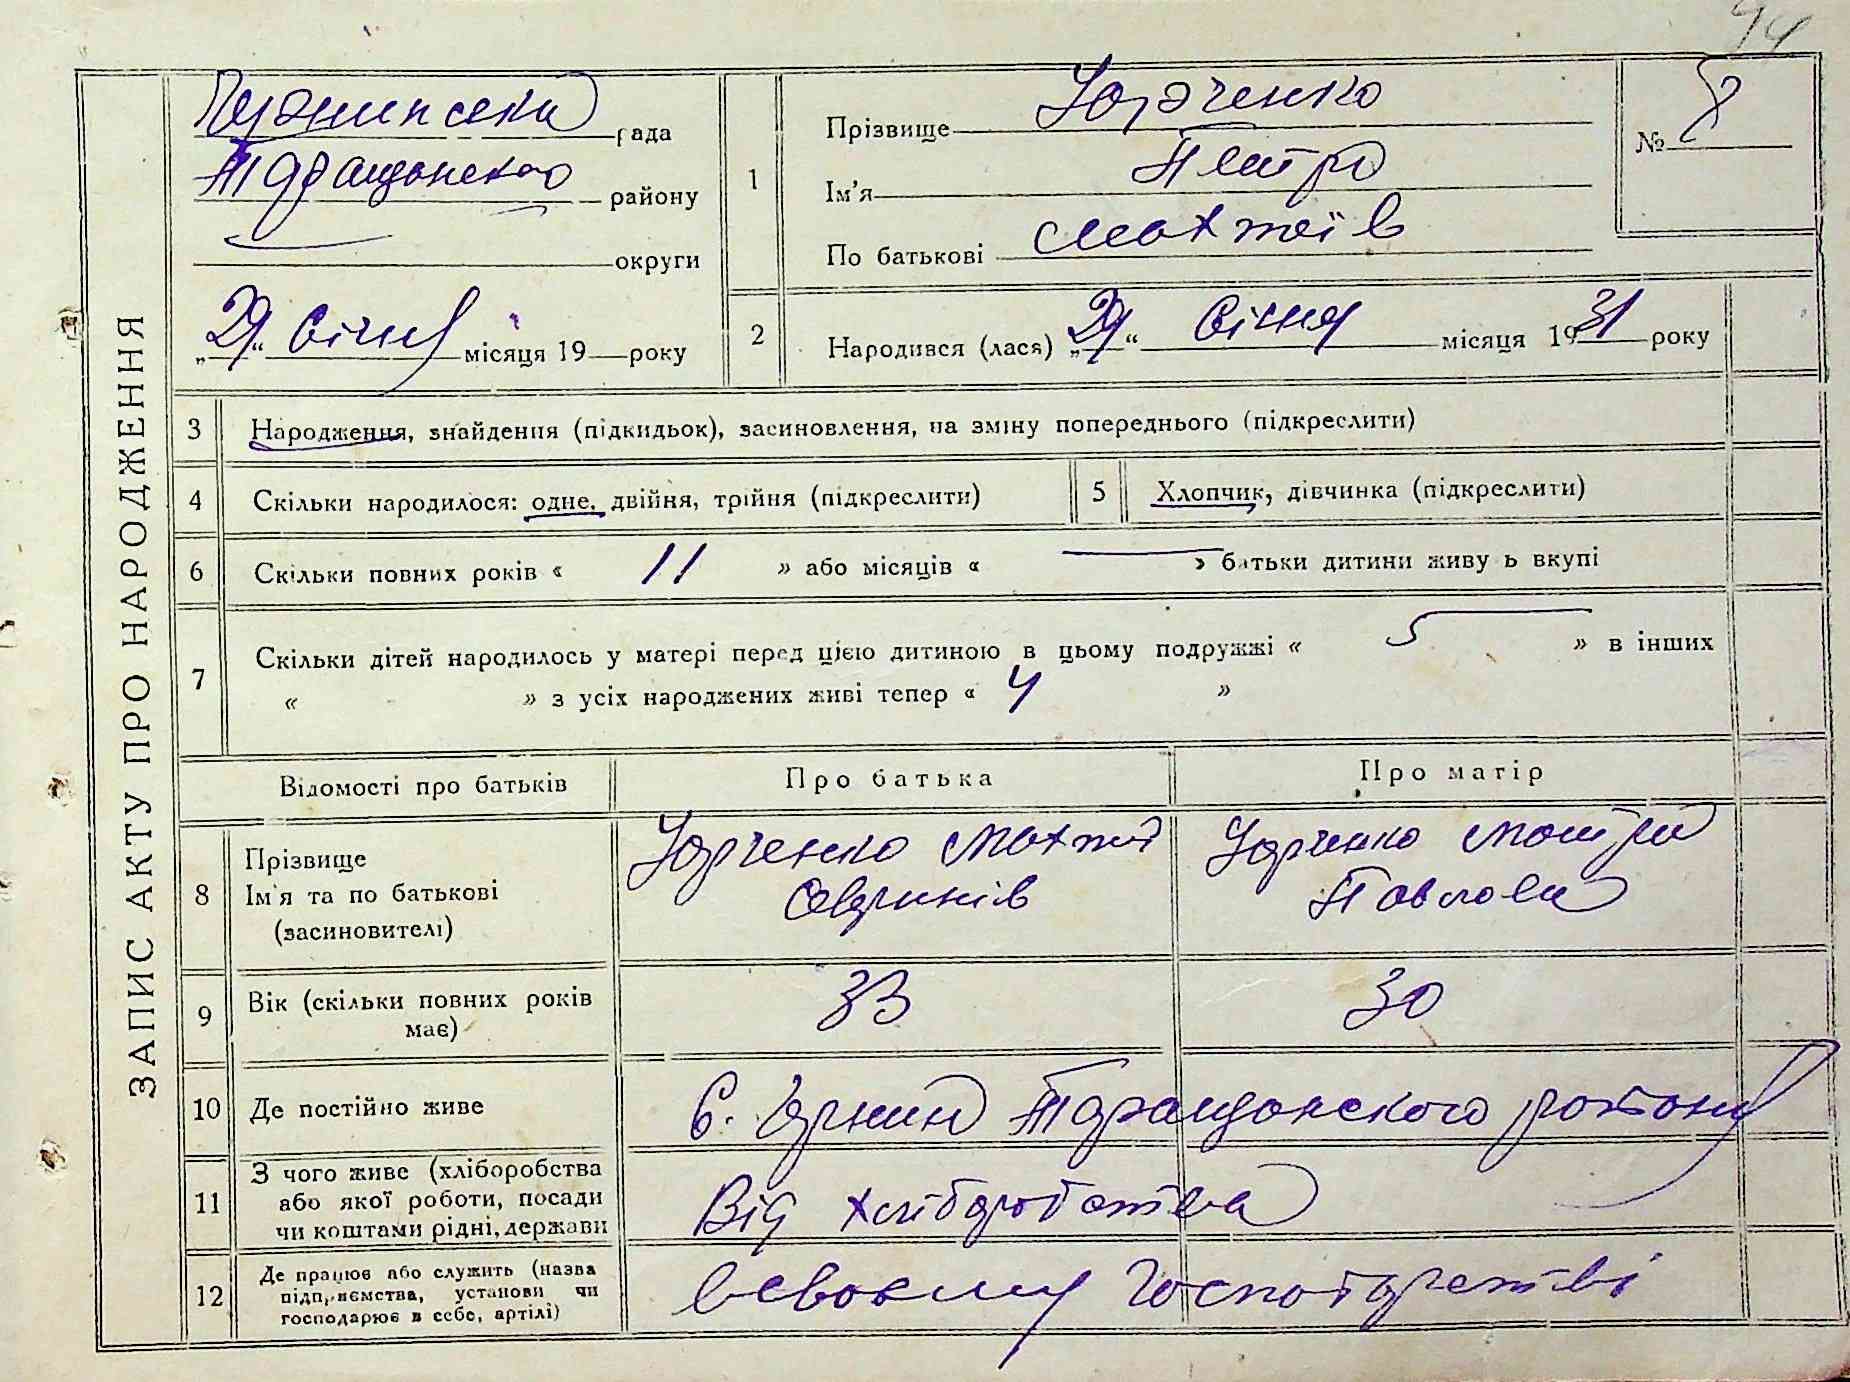 44
ЗАПИС АКТУ ПРО НАРОДЖЕННЯ
рада
Таращанского району
округи
„29“ Січня місяця 19 року
1
Прізвище Юрченко
Ім'я Петро
По батькові Матжеїв
№ 8
2
Народився (лася) „29“ Січня місяця 1931 року
3 Народження, знайдення (підкидьок), засиновлення, на зміну попереднього (підкреслити)
4 Скільки народилося: одне, двійня, трійня (підкреслити)
5 Хлопчик, дівчинка (підкреслити)
6 Скільки повних років « 11 » або місяців « — » батьки дитини живу ь вкупі
7 Скільки дітей народилось у матері перед цією дитиною в цьому подружжі « 5 » в інших
« » з усіх народжених живі тепер « 4 »
Відомості про батьків Про батька Про матір
8 Прізвище
Ім'я та по батькові
(засиновителі)
Юрченко
Юрченко Мотря
Павлова
9 Вік (скільки повних років
має)
33 30
10 Де постійно живе
С. Таращанского району
11 З чого живе (хліборобства
або якої роботи, посади
чи коштами рідні, держави
Від хліборобства
12 Де працює або служить (назва
підприємства, установи чи
господарює в себе, артілі)
в своєму господарстві